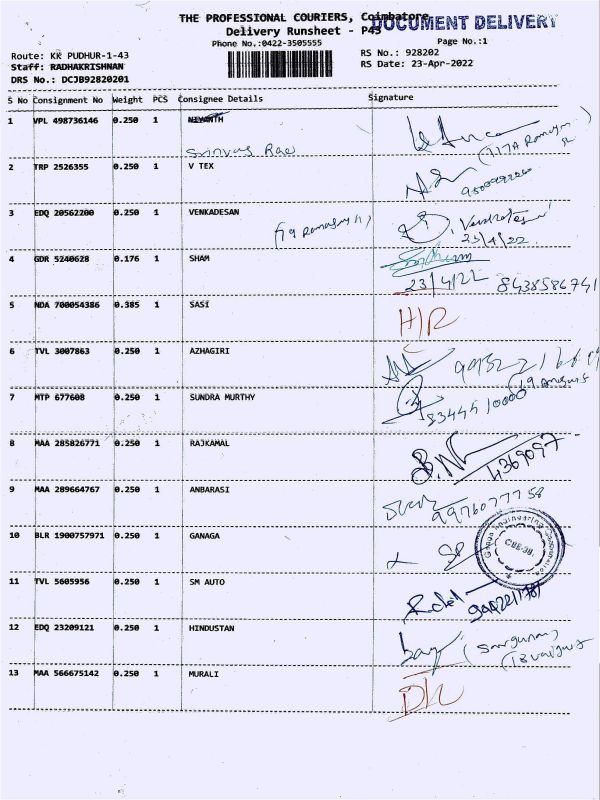 THE PROFESSIONAL COURIERS, Coimbatore
DOCUMENT DELIVERY
Delivery Runsheet - P43
Phone No.:0422-3505555
Page No.:1
Route: KK PUDHUR-1-43
RS No.: 928202
Staff: RADHAKRISHNAN
RS Date: 23-Apr-2022
DRS No.: DCJB92820201
S No Consignment No Weight PCS Consignee Details Signature
1 VPL 498736146 0.250 1 NIVANTH
Srinvas Rao
2 TRP 2526355 0.250 1 V TEX
3 EDQ 20562200 0.250 1 VENKADESAN
23/4/22
4 GDR 5240628 0.176 1 SHAM
23/4/22 8438586741
5 NDA 700054386 0.385 1 SASI
H/R
6 TVL 3007863 0.250 1 AZHAGIRI
7 MTP 677608 0.250 1 SUNDRA MURTHY
8344510000
8 MAA 285826771 0.250 1 RAJKAMAL
4369097
9 MAA 289664767 0.250 1 ANBARASI
9976077758
10 BLR 1900757971 0.250 1 GANAGA
CBE-38.
11 TVL 5605956 0.250 1 SM AUTO
12 EDQ 23209121 0.250 1 HINDUSTAN
13 MAA 566675142 0.250 1 MURALI